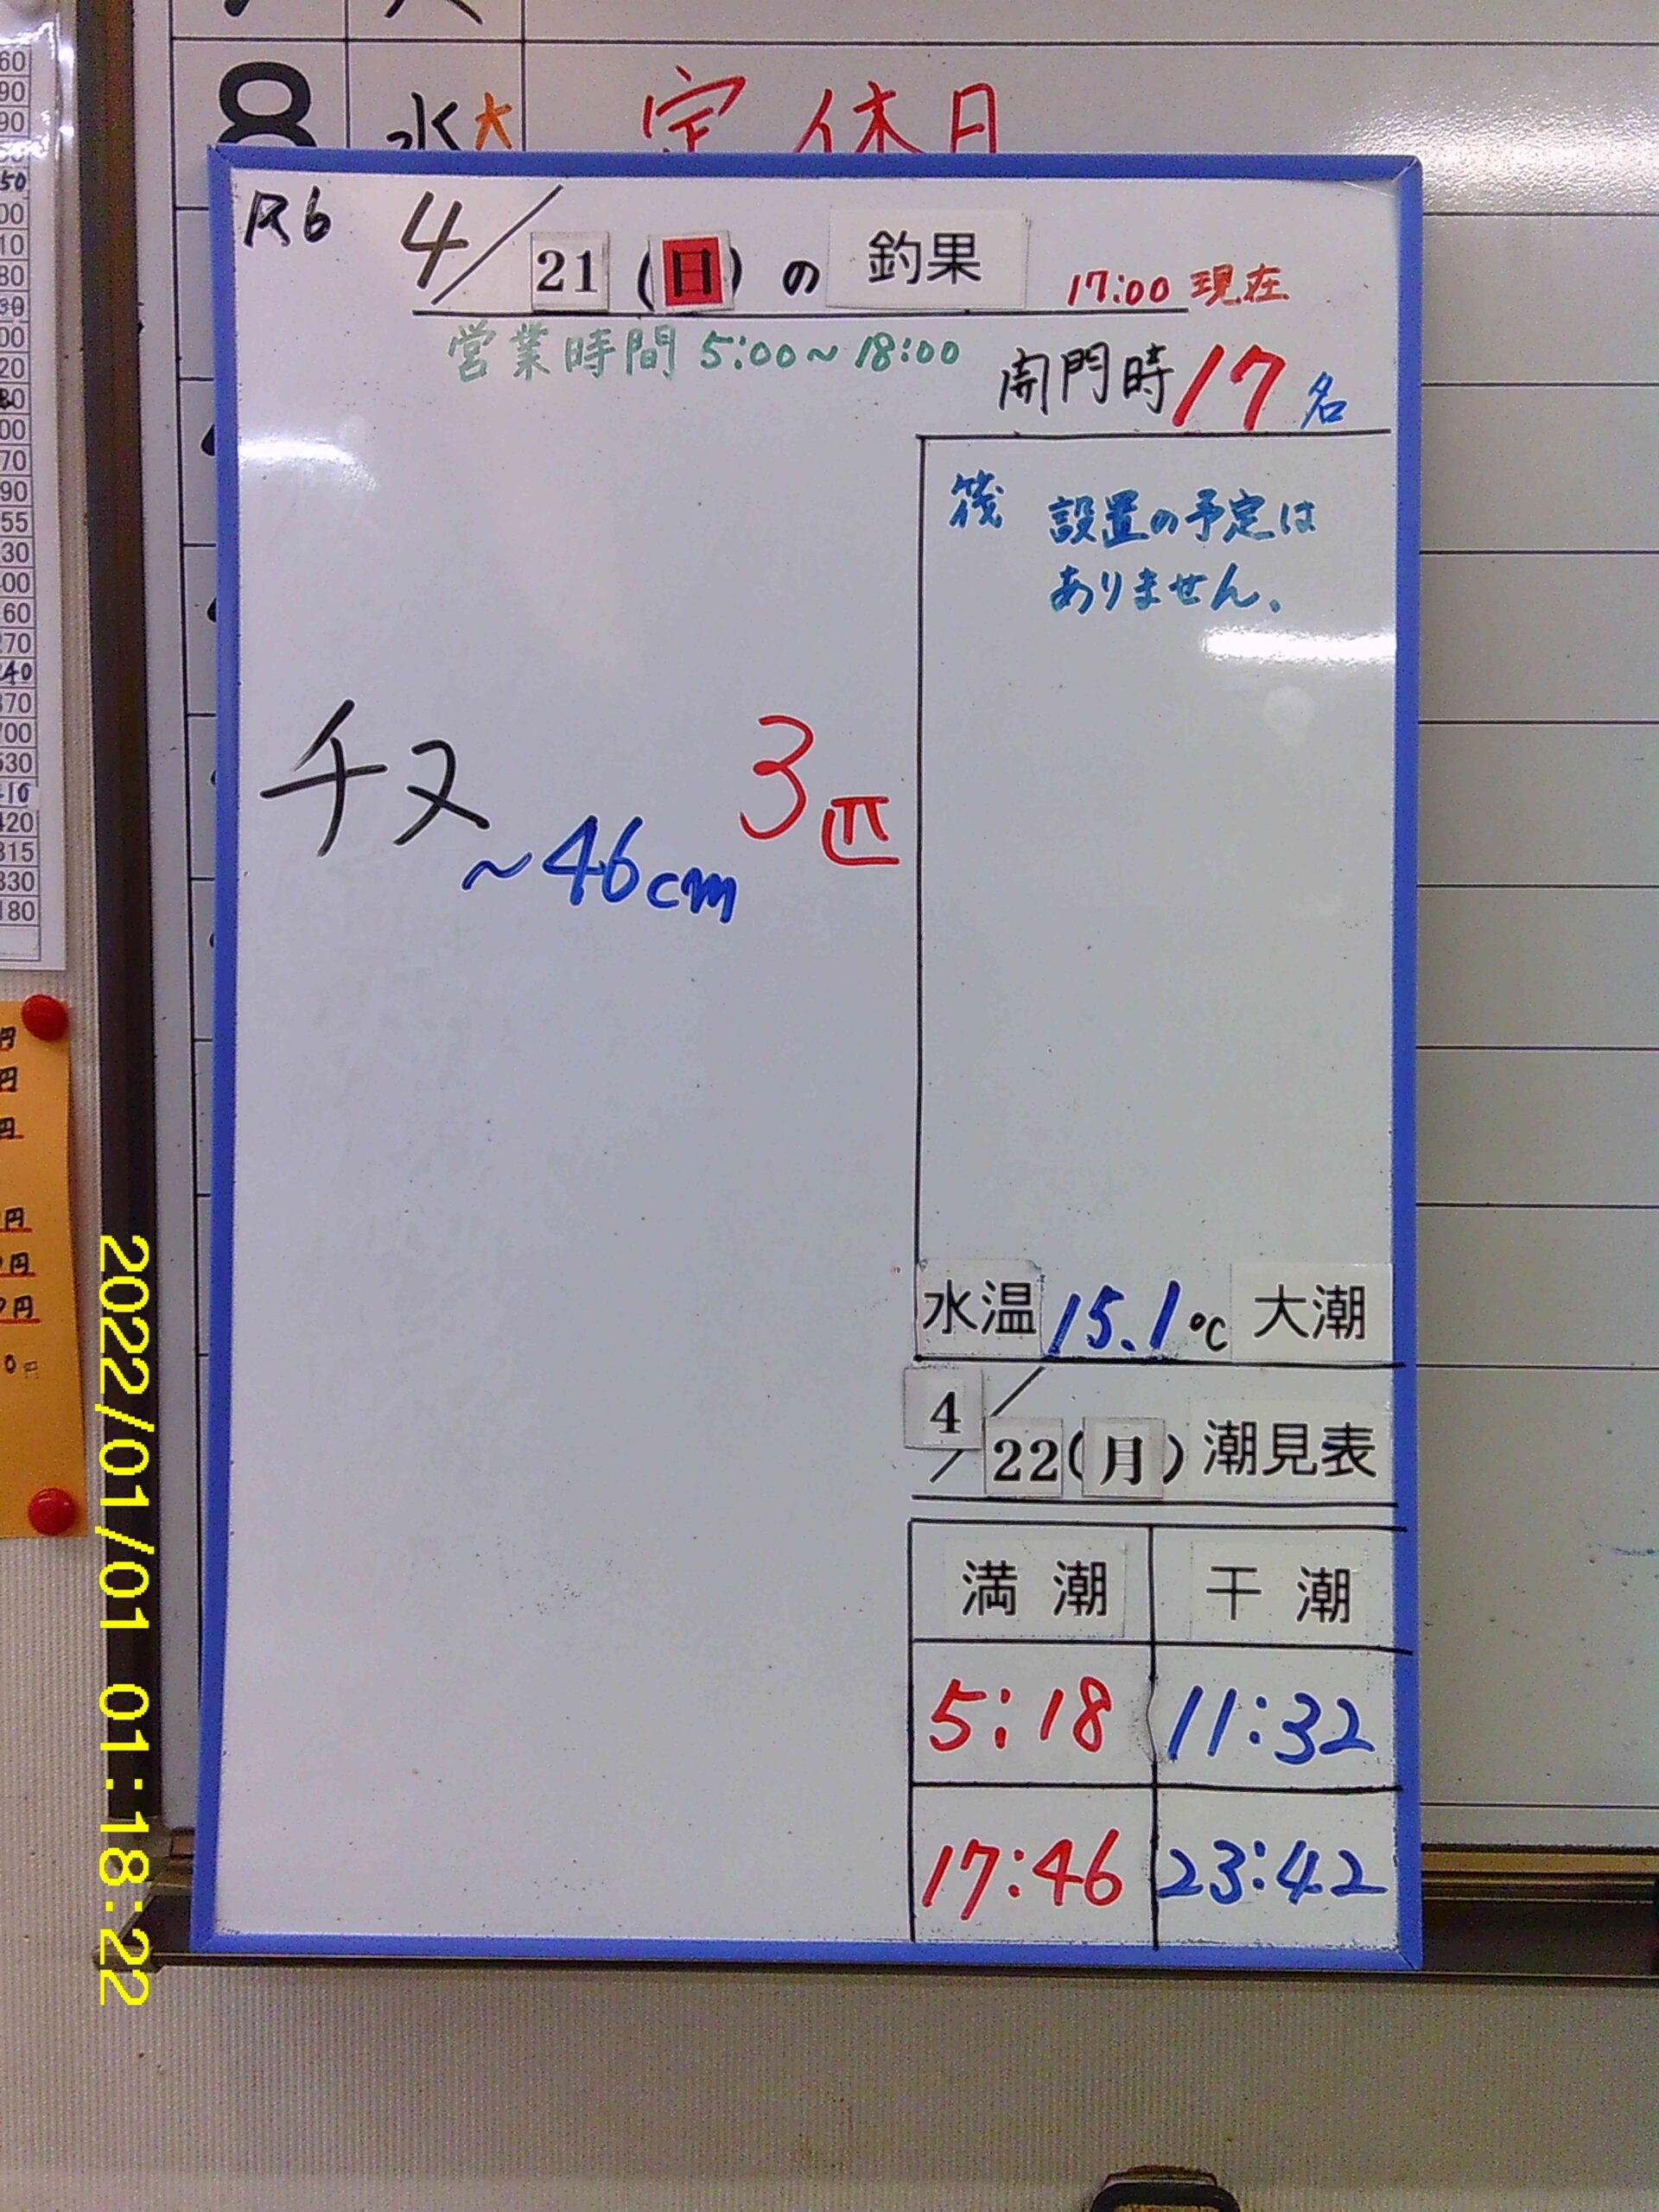 8 水 大 定休日
R6 4/21(日)の 釣果 17:00 現在
営業時間 5:00~18:00
開門時 17名
筏 設置の予定は
ありません。
チヌ ~46cm 3匹
水温 15.1℃ 大潮
4/22(月) 潮見表
満潮 干潮
5:18 11:32
17:46 23:42
2022/01/01 01:18:22